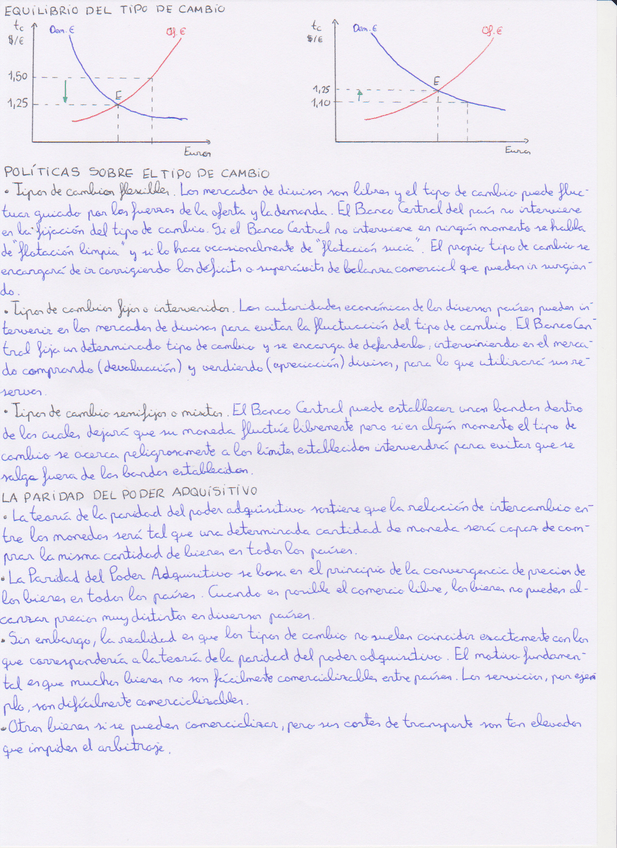 EQUILIBRIO DEL TIPO DE CAMBIO
tc
$/€
Dem. €
Of. €
1,50
1,25
E
Euros
tc
$/€
Dem. €
Of. €
1,25
1,10
E
Euros
POLÍTICAS SOBRE EL TIPO DE CAMBIO
• Tipos de cambios flexibles. Los mercados de divisas son libres y el tipo de cambio puede fluc-
tuar guiado por las fuerzas de la oferta y la demanda. El Banco Central del país no interviene
en la fijación del tipo de cambio. Si el Banco Central no interviene en ningún momento se habla
de "flotación limpia" y si lo hace ocasionalmente de "flotación sucia". El propio tipo de cambio se
encargará de ir corrigiendo los déficits o superávits de balanza comercial que puedan ir surgien-
do.
• Tipos de cambios fijos o intervenidos. Las autoridades económicas de los diversos países pueden in-
tervenir en los mercados de divisas para evitar la fluctuación del tipo de cambio. El Banco Cen-
tral fija un determinado tipo de cambio y se encarga de defenderlo, interviniendo en el merca-
do comprando (devaluación) y vendiendo (apreciación) divisas, para lo que utilizará sus re-
servas.
• Tipos de cambio semifijos o mixtos. El Banco Central puede establecer unas bandas dentro
de las cuales dejará que su moneda fluctúe libremente pero si en algún momento el tipo de
cambio se acerca peligrosamente a los límites establecidos intervendrá para evitar que se
salga fuera de las bandas establecidas.
LA PARIDAD DEL PODER ADQUISITIVO
• La teoría de la paridad del poder adquisitivo sostiene que la relación de intercambio en-
tre las monedas será tal que una determinada cantidad de moneda será capaz de com-
prar la misma cantidad de bienes en todos los países.
• La Paridad del Poder Adquisitivo se basa en el principio de la convergencia de precios de
los bienes en todos los países. Cuando es posible el comercio libre, los bienes no pueden al-
canzar precios muy distintos en diversos países.
• Sin embargo, la realidad es que los tipos de cambio no suelen coincidir exactamente con los
que correspondería a la teoría de la paridad del poder adquisitivo. El motivo fundamen-
tal es que muchos bienes no son fácilmente comercializables entre países. Los servicios, por ejem-
plo, son difícilmente comercializables.
• Otros bienes si se pueden comercializar, pero sus costes de transporte son tan elevados
que impiden el arbitraje.